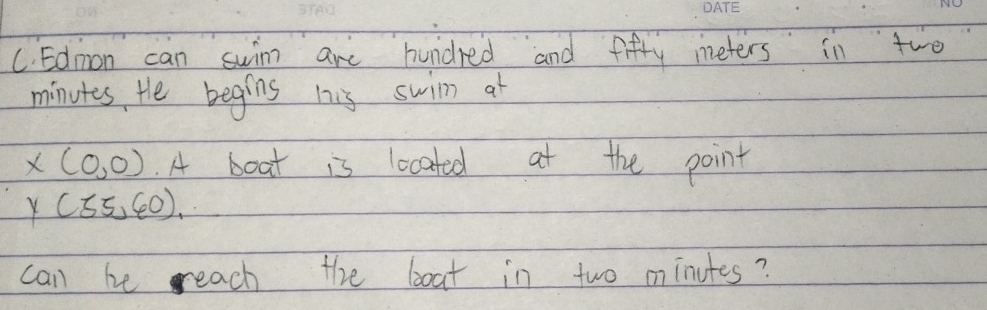 DATE
NO
C. Edmon can swim are hundred and fifty meters in two
minutes. He begins his swim at
X (0,0). A boat is located at the point
Y (55,60).
can he reach the boat in two minutes?